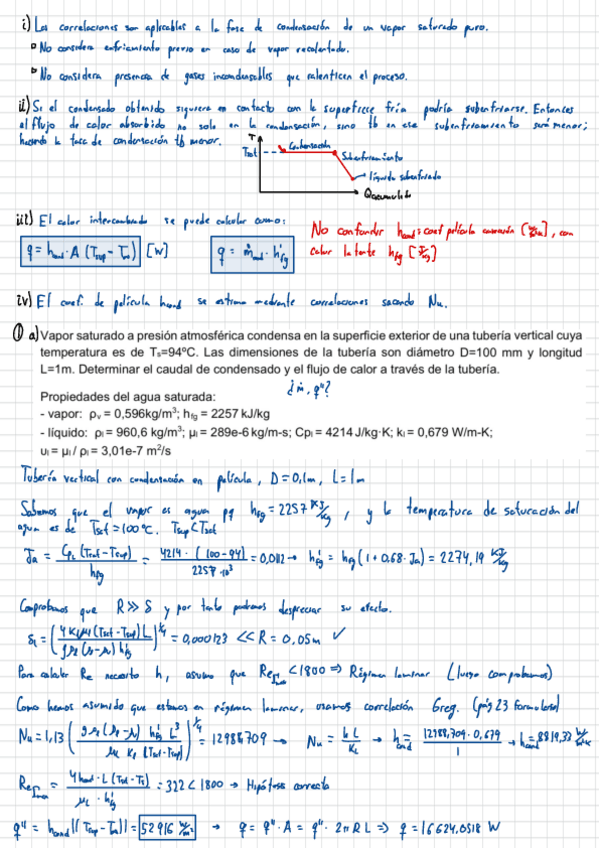 i) Las correlaciones son aplicables a la fase de condensación de un vapor saturado puro.
▫ No considera enfriamiento previo en caso de vapor recalentado.
▫ No considera presencia de gases incondensables que ralenticen el proceso.
ii) Si el condensado obtenido siguiera en contacto con la superficie fría podría subenfriarse. Entonces
el flujo de calor absorbido no solo en la condensación, sino tb en ese subenfriamiento será menor;
haciendo la tasa de condensación tb menor.
T
Tsat
Condensación
Subenfriamiento
líquido subenfriado
Qacumulado
iii) El calor intercambiado se puede calcular como:
q = hcond · A (Tsup - Tsat) [W]
q = ṁcond · h'fg
No confundir hcond = coef película convección [W/m²K], con
calor latente hfg [J/kg]
iv) El coef. de película hcond se estima mediante correlaciones sacando Nu.
① a) Vapor saturado a presión atmosférica condensa en la superficie exterior de una tubería vertical cuya
temperatura es de Ts=94ºC. Las dimensiones de la tubería son diámetro D=100 mm y longitud
L=1m. Determinar el caudal de condensado y el flujo de calor a través de la tubería.
¿ṁ, q"?
Propiedades del agua saturada:
- vapor: ρv = 0,596kg/m³; hfg = 2257 kJ/kg
- líquido: ρl = 960,6 kg/m³; μl = 289e-6 kg/m-s; Cpl = 4214 J/kg·K; kl = 0,679 W/m-K;
υl = μl / ρl = 3,01e-7 m²/s
Tubería vertical con condensación en película, D = 0,1m, L = 1m
Sabemos que el vapor es agua pq hfg = 2257 KJ/kg, y la temperatura de saturación del
agua es de Tsat = 100°C. Tsup < Tsat
Ja = CpL (Tsat - Tsup) / hfg = 4214 · (100 - 94) / 2257 · 10³ = 0,0112 → h'fg = hfg (1 + 0.68 · Ja) = 2274,19 KJ/kg
Comprobamos que R >> δ y por tanto podemos despreciar su efecto.
δL = (4 KL μL (Tsat - Tsup) L / g ρL (ρL - ρv) h'fg)^1/4 = 0,000123 << R = 0,05m ✓
Para calcular Re necesito h, asumo que Reδmax < 1800 ⇒ Régimen laminar (luego comprobamos)
Como hemos asumido que estamos en régimen laminar, usamos correlación Greg. (pág 23 formulario)
Nu = 1,13 (g ρL (ρL - ρv) h'fg L³ / μL KL (Tsat - Tsup))^1/4 = 12988,709 → Nu = h L / KL → hcond = 12988,709 · 0,679 / 1 → hcond = 8819,33 W/m²K
Reδmax = 4 hcond · L (Tsat - Ts) / μL · h'fg = 322 < 1800 → Hipótesis correcta
q" = hcond |(Tsup - Tsat)| = 52916 W/m² → q = q" · A = q" · 2π R L ⇒ q = 16624,0518 W